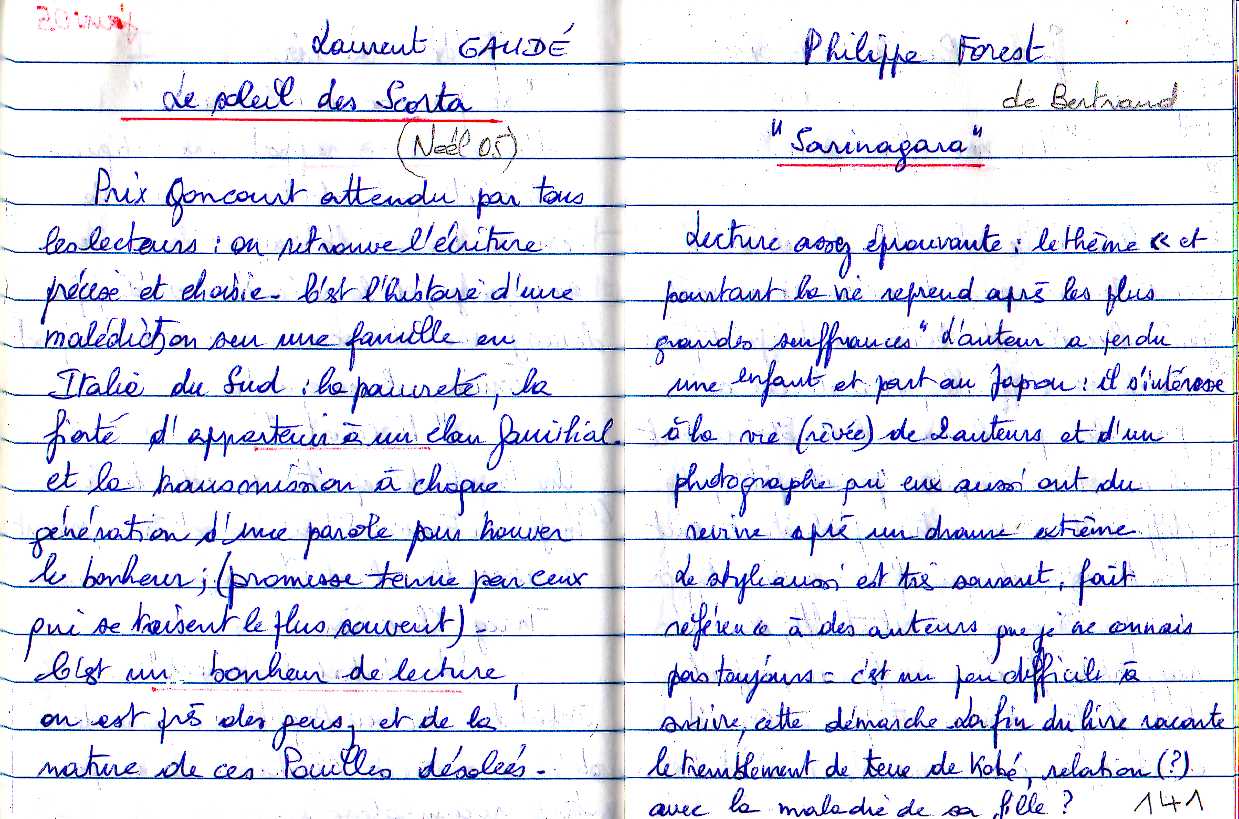 Laurent GAUDÉ
Le soleil des Scorta
(Noël 05)
Prix Goncourt attendu par tous
les lecteurs : on retrouve l'écriture
précise et choisie - C'est l'histoire d'une
malédiction sur une famille en
Italie du Sud : la pauvreté, la
fierté d'appartenir à un clan familial.
et la transmission à chaque
génération d'une parole pour trouver
le bonheur ; (promesse tenue par ceux
qui se taisent le plus souvent) -
C'est un bonheur de lecture,
on est près des gens, et de la
nature de ces Pouilles désolées -
Philippe Forest
de Bertrand
"Sarinagara"
Lecture assez éprouvante : le thème « et
pourtant la vie reprend après les plus
grandes souffrances" L'auteur a perdu
une enfant et part au Japon : il s'intéresse
à la vie (rêvée) de 2 auteurs et d'un
photographe qui eux aussi ont du
revivre après un drame extrême
Le style aussi est très savant, fait
référence à des auteurs que je ne connais
pas toujours = c'est un peu difficile à
suivre, cette démarche La fin du livre raconte
le tremblement de terre de Kobé, relation (?)
avec la maladie de sa fille ? 141